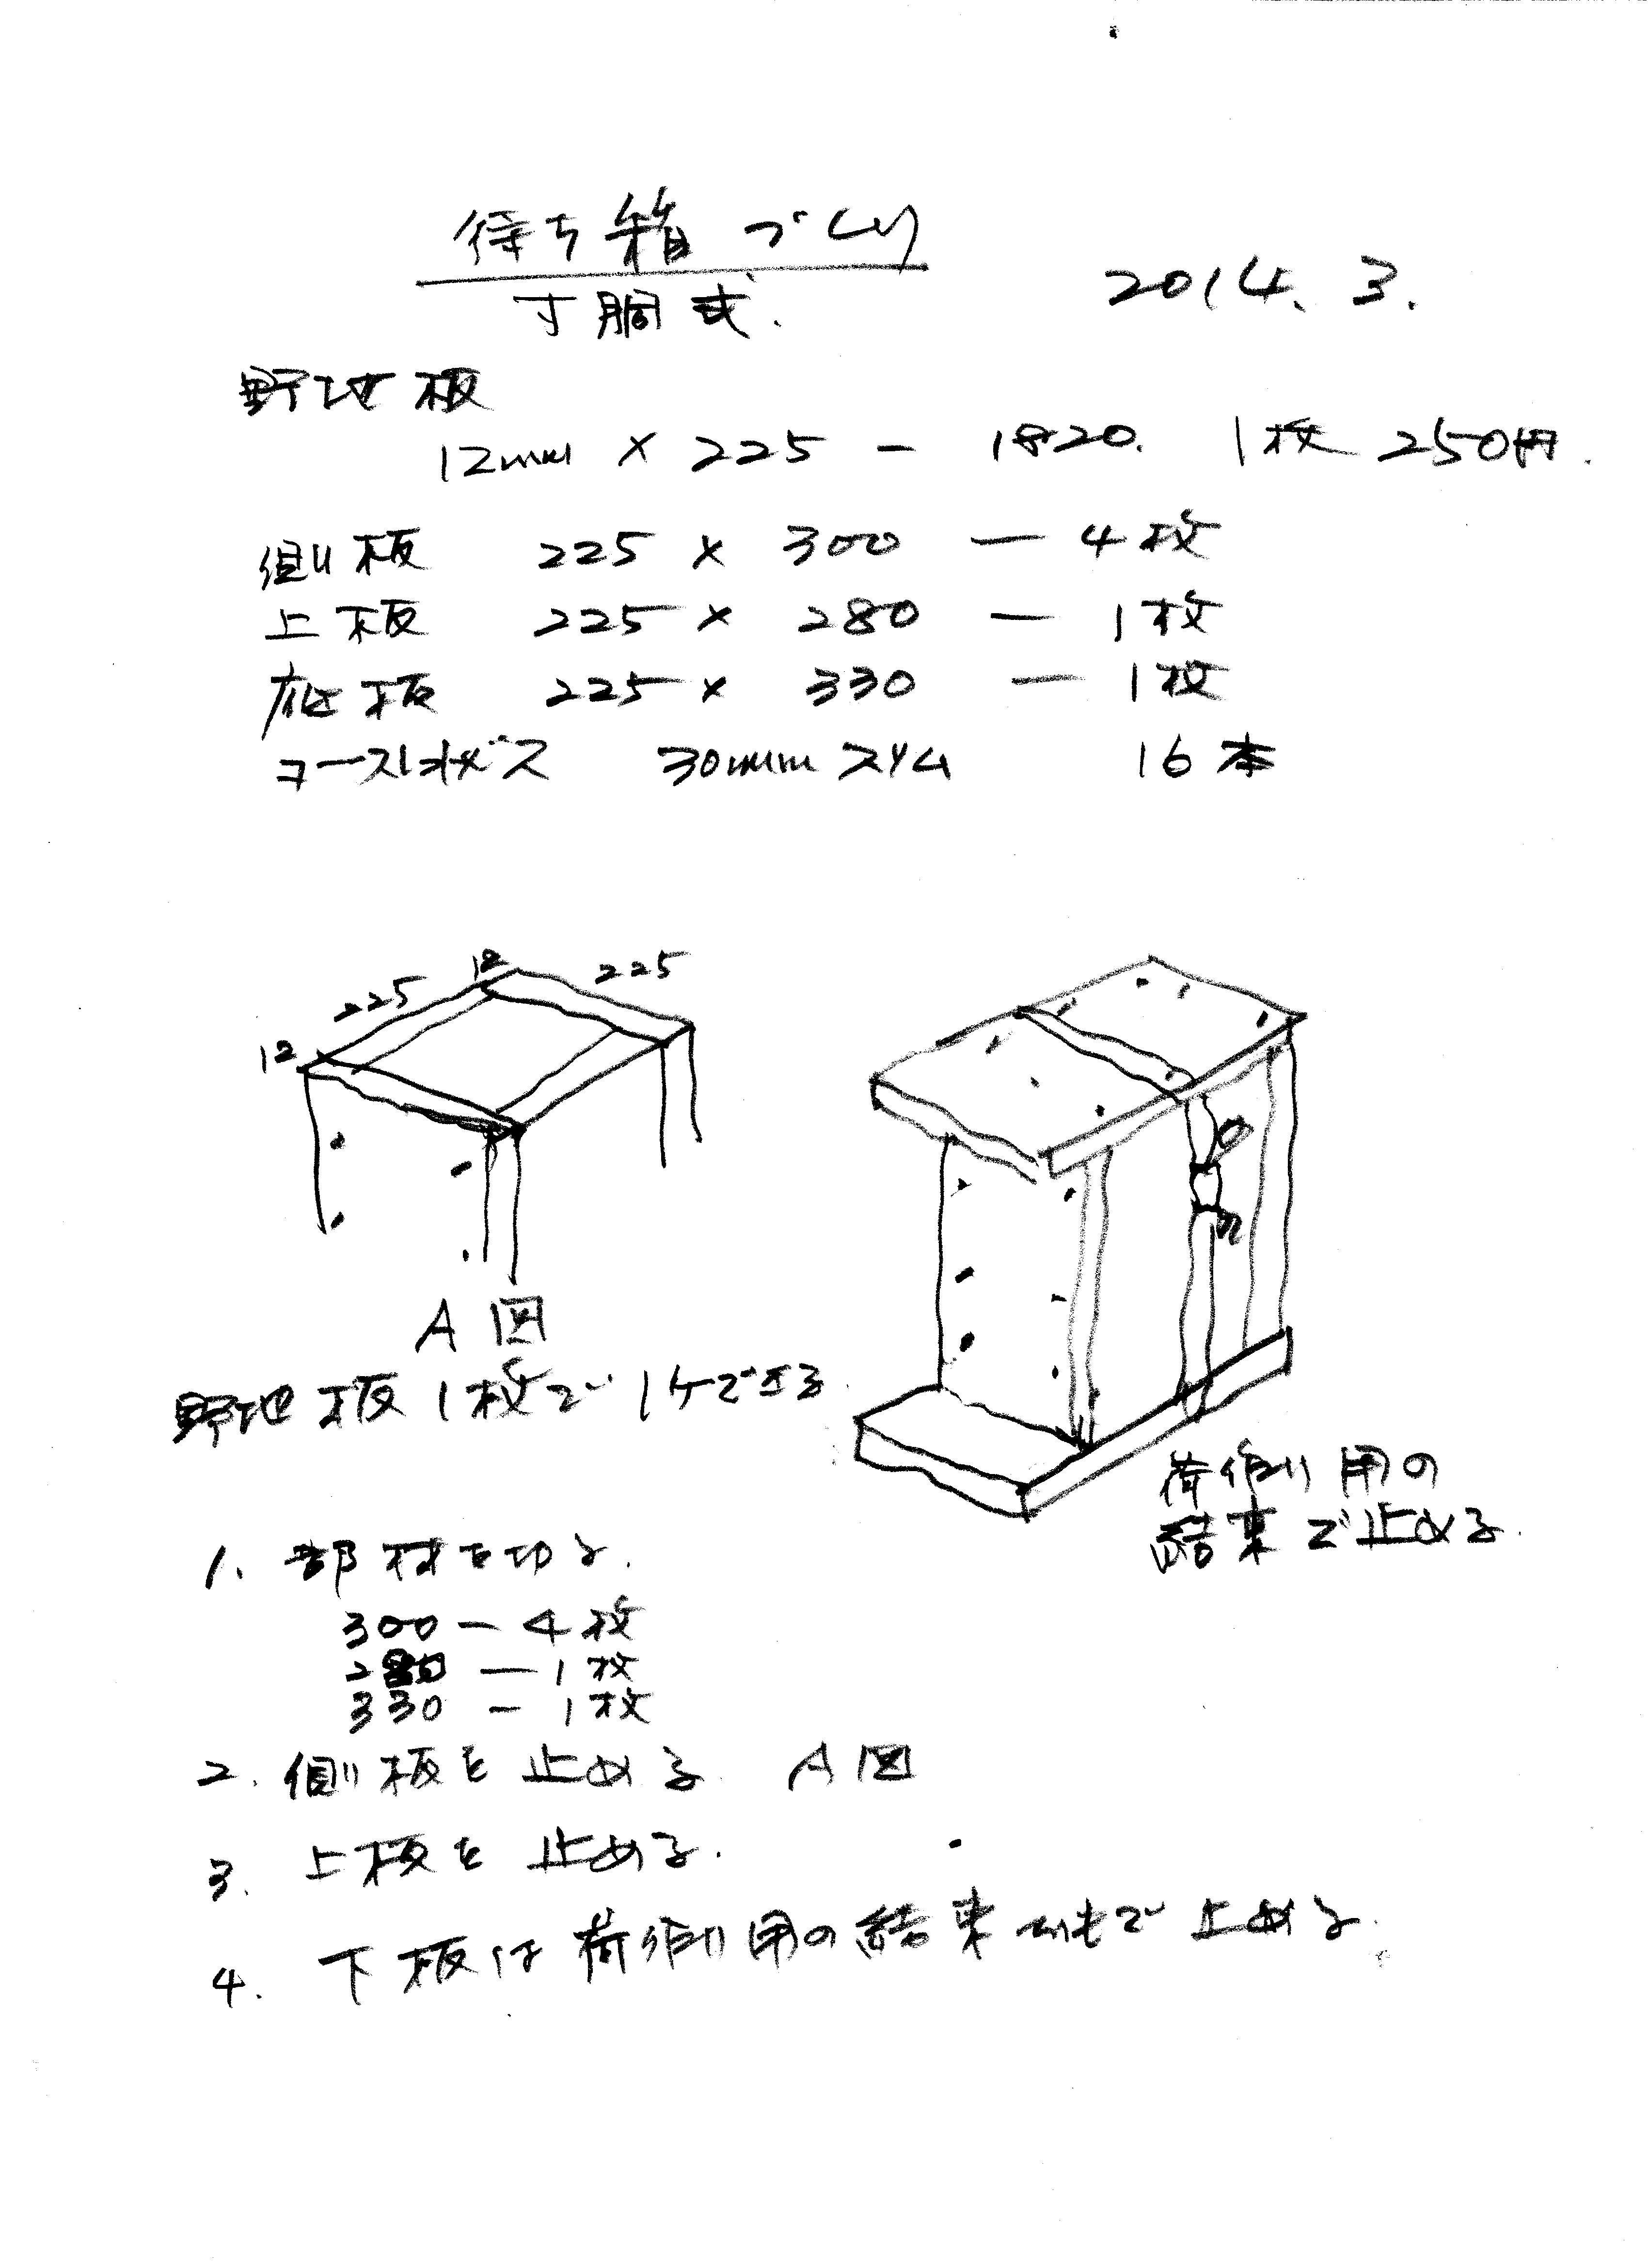 待ち箱づくり
丁胴式.
2014. 3.
野地板
12mm × 225 - 1820. 1枚 250円.
側板 225 × 300 - 4枚
上板 225 × 280 - 1枚
底板 225 × 330 - 1枚
コースレッドビス 30mm スリム 16本
12 225
225
12
A図
野地板1枚で1ケできる.
荷作り用の
結束で止める.
1. 部材を切る.
300 - 4枚
280 - 1枚
330 - 1枚
2. 側板を止める A図
3. 上板を止める.
4. 下板は荷作り用の結束ひもで止める.